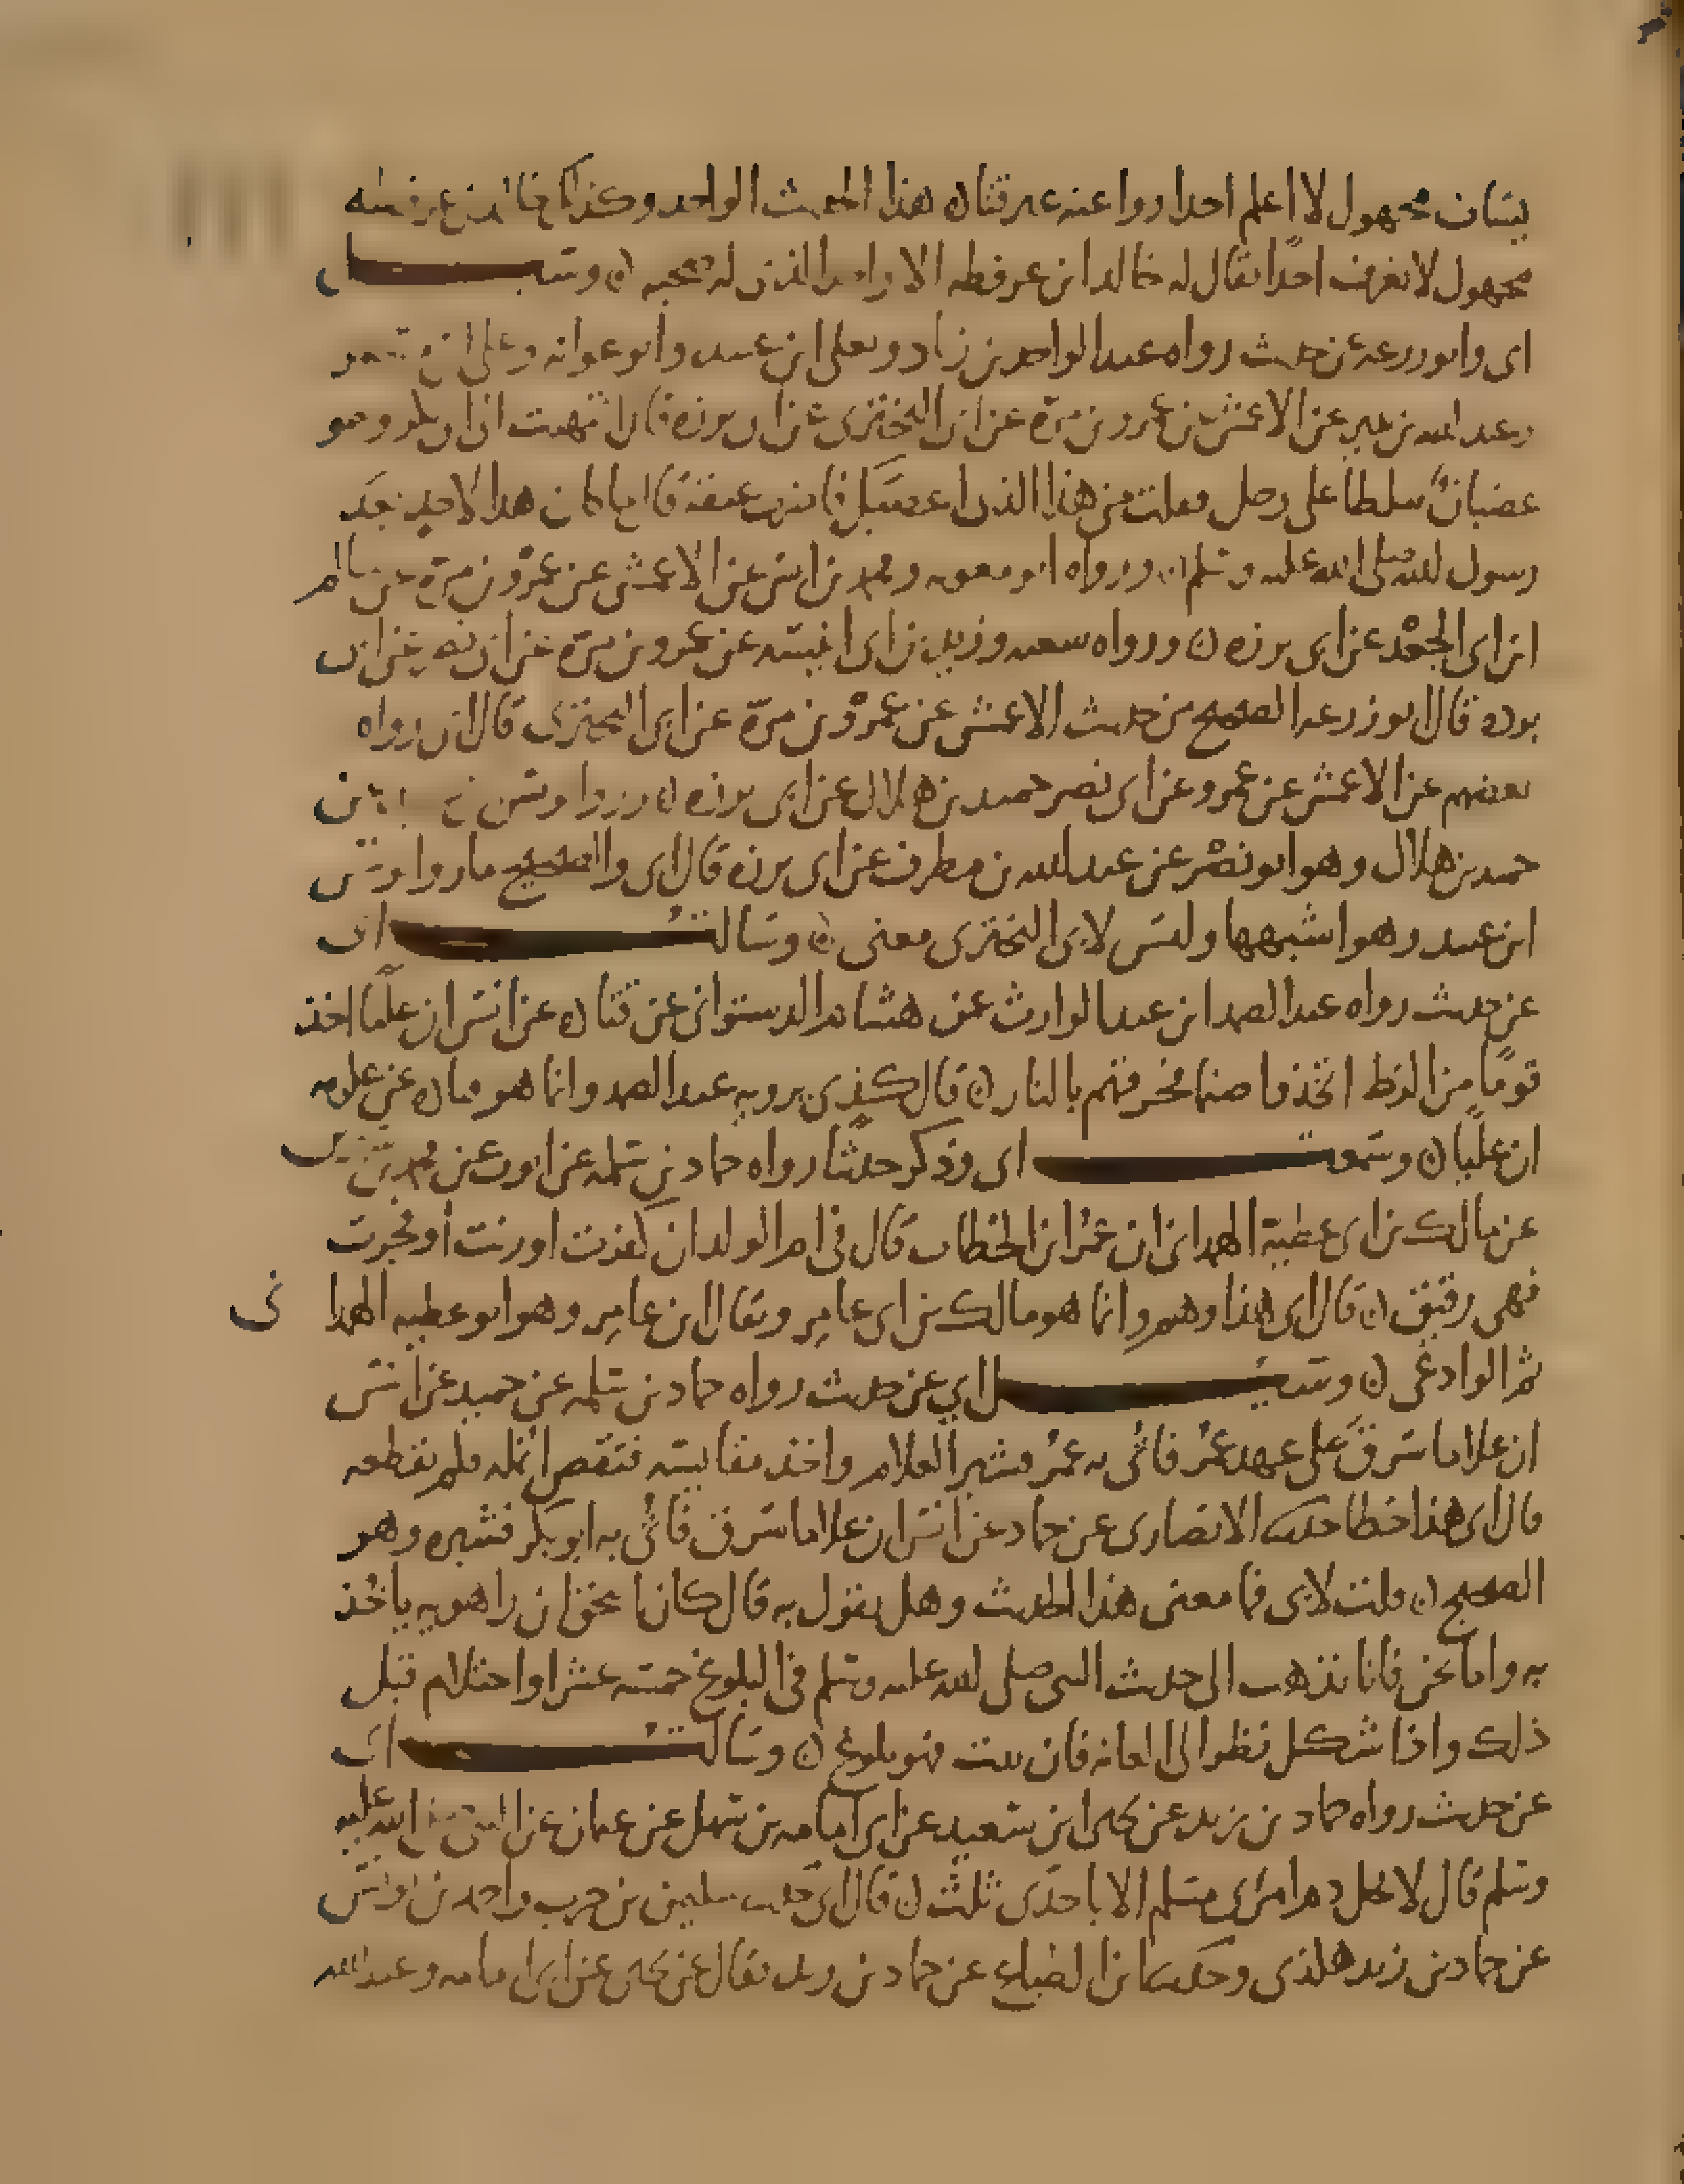 يساف مجهول لا اعلم احدا روا عنه غير قتاده هذا الحديث الواحد وكذا خالد بن عرفطه
مجهول لا نعرف احدًا يقال له خالد ابن عرفطه الا واحدا الذي له صحبه ه وسيـــــــل
ابي وابو زرعه عن حديث رواه عبد الواحد بن زياد ويعلى ابن عبيد وابو عوانه وعلي بن مسهر
وعبد الله بن نمير عن الاعمش عن عمرو بن مرّة عن ابي البختري عن ابي برزه قال انتهيت الى ابي بكر وهو
غضبان سلطا على رجل فقلت من هذا الذي اغضبك فاضرب عنقه فقال ما كان هذا لاحدٍ بعد
رسول الله صلى الله عليه وسلم ه ورواه ابو معويه ومحمد بن انس عن الاعمش عن عمرو بن مرّة عن سالم
ابن ابي الجعْد عن ابي برزه ه ورواه سعبه وزيد بن ابي انيسه عن عمرو بن مرّة عن ابي نصر عن ابي
برزه قال ابو زرعه الصحيح من حديث الاعمش عن عمرو بن مرّة عن ابي البختري قال ابي رواه
بعضهم عن الاعمش عن عمرو عن ابي نصر حميد بن هلال عن ابي برزه ه وروا يونس بن عبيد عن
حميد بن هلال وهو ابو نصْر عن عبد الله بن مطرف عن ابي برزه قال ابي والصحيح ما روا يونس
ابن عبيد وهو اشبهها وليس لابي البختري معنى ه وسالتـــــــ ابي
عن حديث رواه عبد الصمد ابن عبد الوارث عن هشام الدستوائي عن قتاده عن انس ان عليًّا اخذ
قومًا من الزط اتخذوا صنما فحرقهم بالنار ه قال كذي يرويه عبد الصمد وانما هو قتاده عن عكرمه
ان عليًّا ه وسمعتـــــــ ابي وذكر حديثًا رواه حماد بن سلمه عن ايوب عن محمد بن سيرين
عن مالك بن ابي عطية الهمداني ان عمُر ابن الخطاب قال في ام الولد ان كفرت او زنت أو فجرت
فهي رقيق ه قال ابي هذا وهم وانما هو مالك بن ابي عامِر ويقال ابن عامِر وهو ابو عطيه الهمدا ني
ثم الوادعي ه وسيـــــــل ابي عن حديث رواه حماد بن سلمه عن حميد عن انس
ان غلاما سَرق على عهد عمُر فاُتي به عمُر فشبر الغلام واخذ مقاييسه فنقص انمله فلم يقطعه
قال ابي هذا خطا حدثنا الانصاري عن حماد عن انس ان غلاما سَرق فاُتي به ابو بكر فشبره وهو
الصحيح ه قلت لابي فما معنى هذا الحديث وهل يقول به قال كان اسحق ابن راهويه ياخُذ
به واما نحن فانا نذهب الى حديث النبي صلى الله عليه وسلم في البلوغ خمسه عشر او احتلام قبل
ذلك واذا شكل نظر الى العانه فان نبت فهو بلوغ ه وسالتـــــــ ابي
عن حديث رواه حماد بن زيد عن يحيى ابن سَعيد عن ابي امامه بن سَهل عن عثمان عن النبي صلى الله عليه
وسلم قال لا يحل دم امرئ مسلم الا باحدَى ثلثٍ ه قال ابي حدثنا سليمن بن حرب واحمد بن يونس
عن حماد بن زيد هكذي وحدثنا ابن الطباع عن حماد بن زيد فقال عن يحيى عن ابي امامه وعبد الله